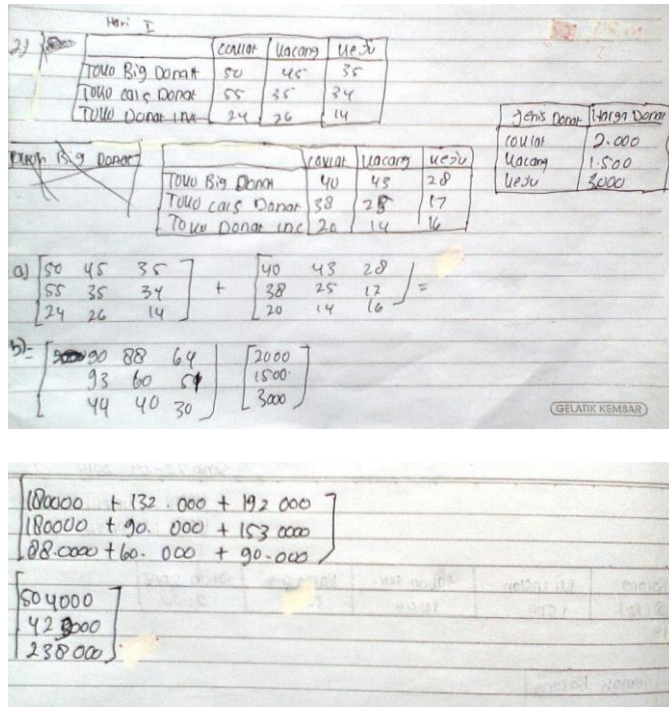 Hari I
2)
coklat kacang keju
Toko Big Donat 50 45 35
Toko cals Donat 55 35 34
Toko Donat inc 24 26 14
Jenis Donat Harga Donat
coklat 2.000
kacang 1.500
keju 3000
Big Donat
coklat kacang keju
Toko Big Donat 40 43 28
Toko cals Donat 38 25 17
Toko Donat inc 20 14 16
a) [50 45 35] + [40 43 28] =
[55 35 34] [38 25 17]
[24 26 14] [20 14 16]
b) = [90 88 64] [2000]
[93 60 51] [1500]
[44 40 30] [3000]
GELATIK KEMBAR
[180000 + 132.000 + 192 000]
[180000 + 90.000 + 153 0000]
[88.0000 + 60.000 + 90.000]
[504000]
[423000]
[238000]